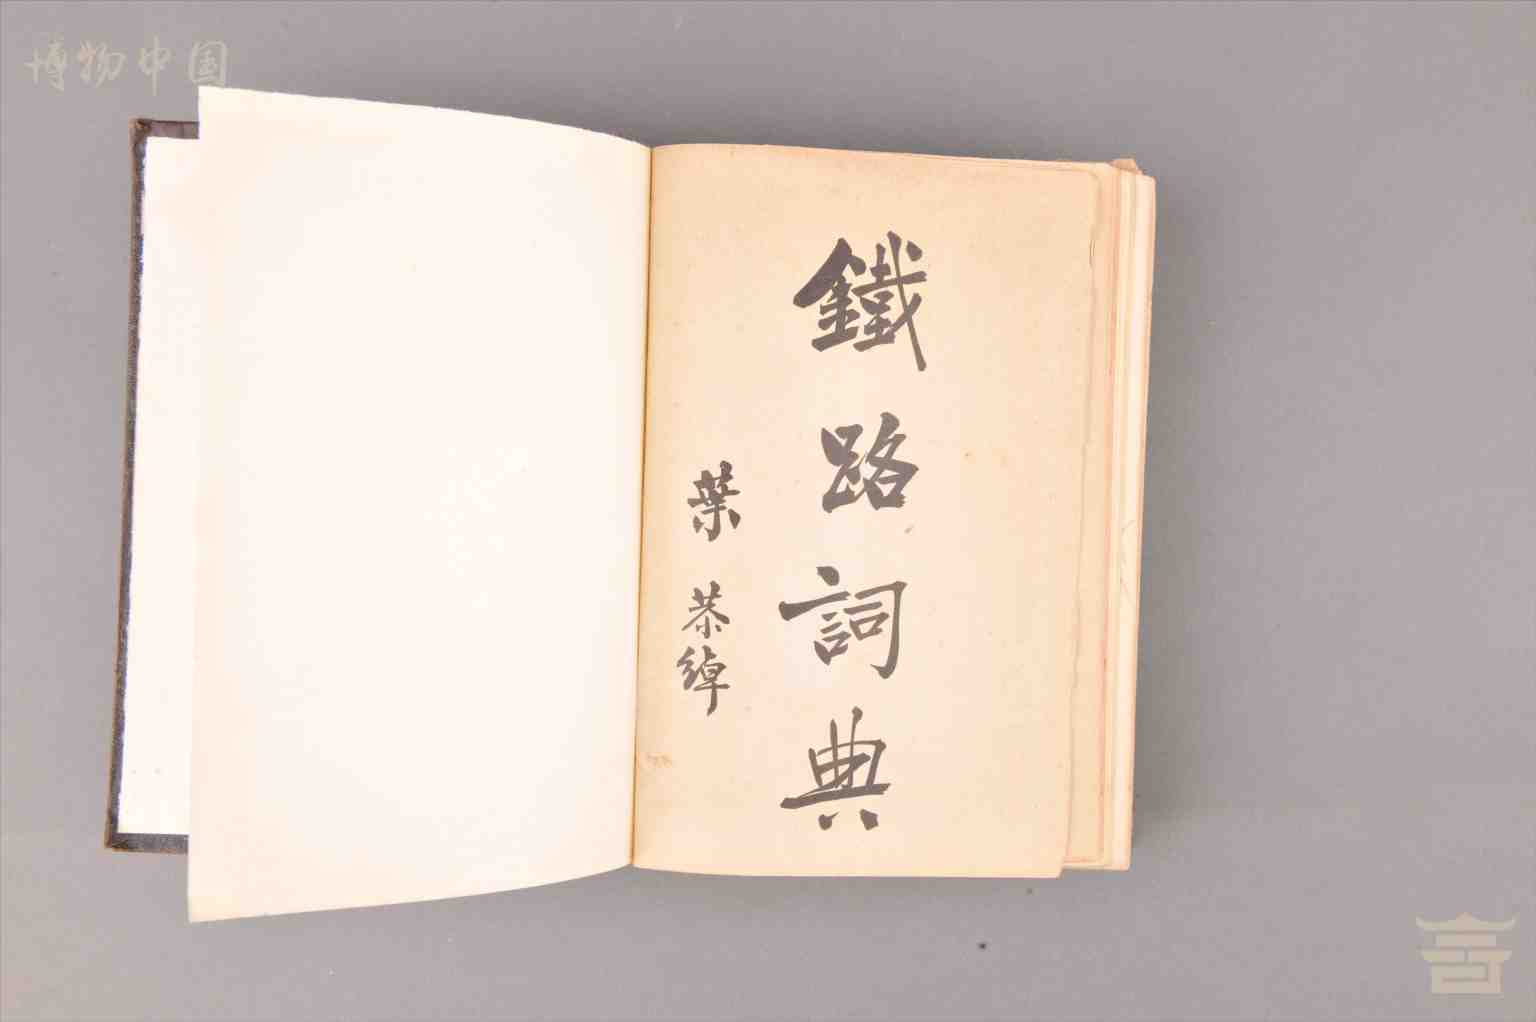 博物中国
鐵路詞典
葉恭綽